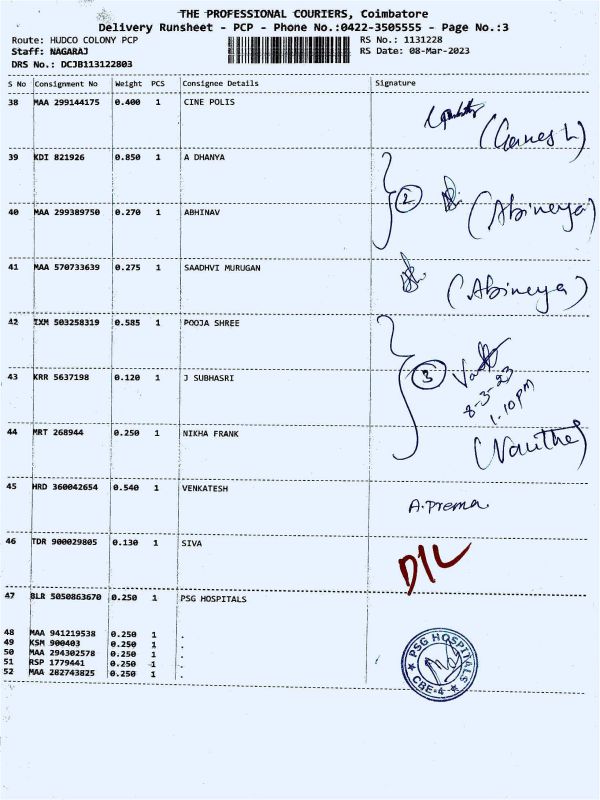 THE PROFESSIONAL COURIERS, Coimbatore
Delivery Runsheet - PCP - Phone No.:0422-3505555 - Page No.:3
Route: HUDCO COLONY PCP RS No.: 1131228
Staff: NAGARAJ RS Date: 08-Mar-2023
DRS No.: DCJB113122803
S No Consignment No Weight PCS Consignee Details Signature
38 MAA 299144175 0.400 1 CINE POLIS
(Ganesh)
39 KDI 821926 0.850 1 A DHANYA
2 (Abineya)
40 MAA 299389750 0.270 1 ABHINAV
41 MAA 570733639 0.275 1 SAADHVI MURUGAN
(Abineya)
42 IXM 503258319 0.585 1 POOJA SHREE
43 KRR 5637198 0.120 1 J SUBHASRI
3
8-3-23
1.10pm
44 MRT 268944 0.250 1 NIKHA FRANK
45 HRD 360042654 0.540 1 VENKATESH
A.Prema
46 TDR 900029805 0.130 1 SIVA
D/L
47 BLR 5050863670 0.250 1 PSG HOSPITALS
48 MAA 941219538 0.250 1 .
49 KSM 900403 0.250 1 .
50 MAA 294302578 0.250 1 .
51 RSP 1779441 0.250 1 .
52 MAA 282743825 0.250 1 .
PSG HOSPITALS
CBE-4